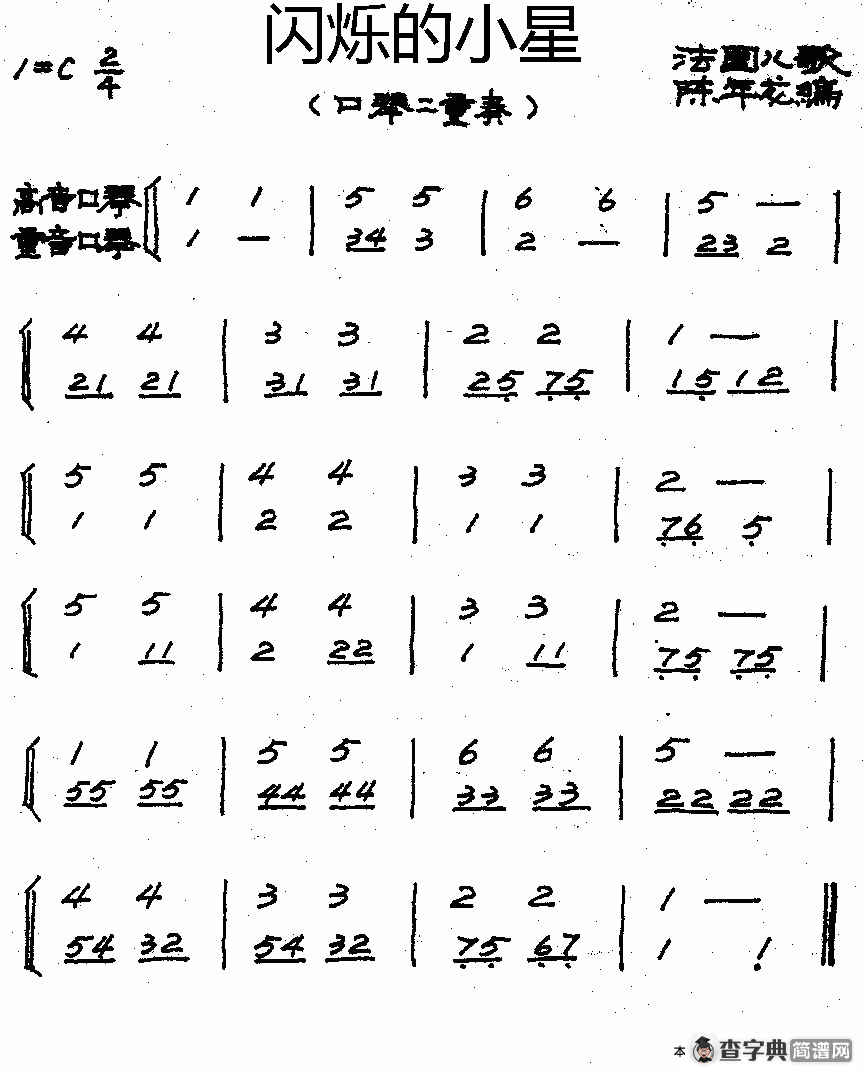 闪烁的小星
1=C 2/4
(口琴二重奏)
法國儿歌
陈年芳编
高音口琴 1 1 | 5 5 | 6 6 | 5 — |
重音口琴 1 — | 34 3 | 2 — | 23 2 |
4 4 | 3 3 | 2 2 | 1 — |
21 21 | 31 31 | 25̣ 7̣5̣ | 15̣ 12 |
5 5 | 4 4 | 3 3 | 2 — |
1 1 | 2 2 | 1 1 | 7̣6̣ 5̣ |
5 5 | 4 4 | 3 3 | 2 — |
1 11 | 2 22 | 1 11 | 7̣5̣ 7̣5̣ |
1 1 | 5 5 | 6 6 | 5 — |
55 55 | 44 44 | 33 33 | 22 22 |
4 4 | 3 3 | 2 2 | 1 — ‖
54 32 | 54 32 | 7̣5̣ 6̣7̣ | 1 1̣ ‖
本 查字典 简谱网